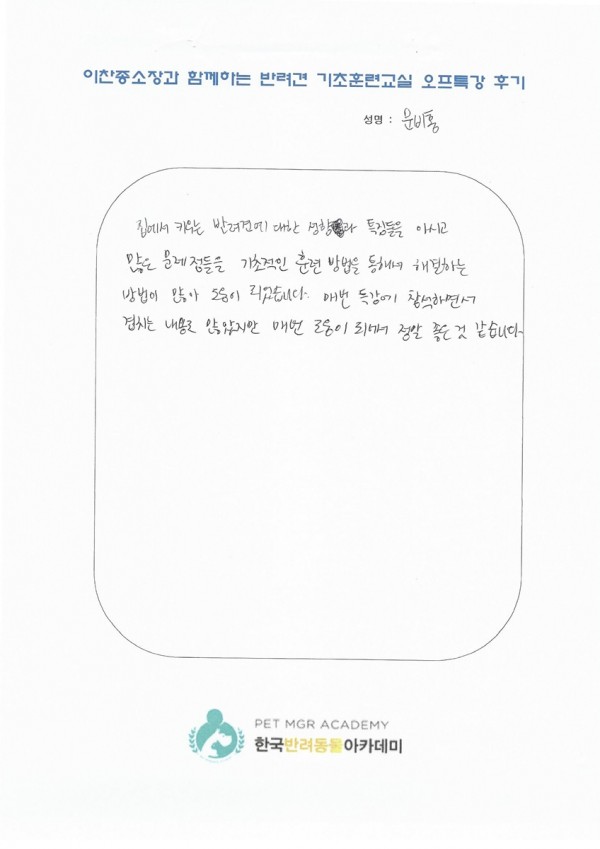 이찬종소장과 함께하는 반려견 기초훈련교실 오프특강 후기
성명 : 문비홍
집에서 키우는 반려견에 대한 성향과 특징들을 아시고
많은 문제점들을 기초적인 훈련 방법을 통해서 해결하는
방법이 많아 도움이 되었습니다. 매번 특강에 참석하면서
겹치는 내용도 많았지만 매번 도움이 되에서 정말 좋은 것 같습니다.
PET MGR ACADEMY
한국반려동물아카데미